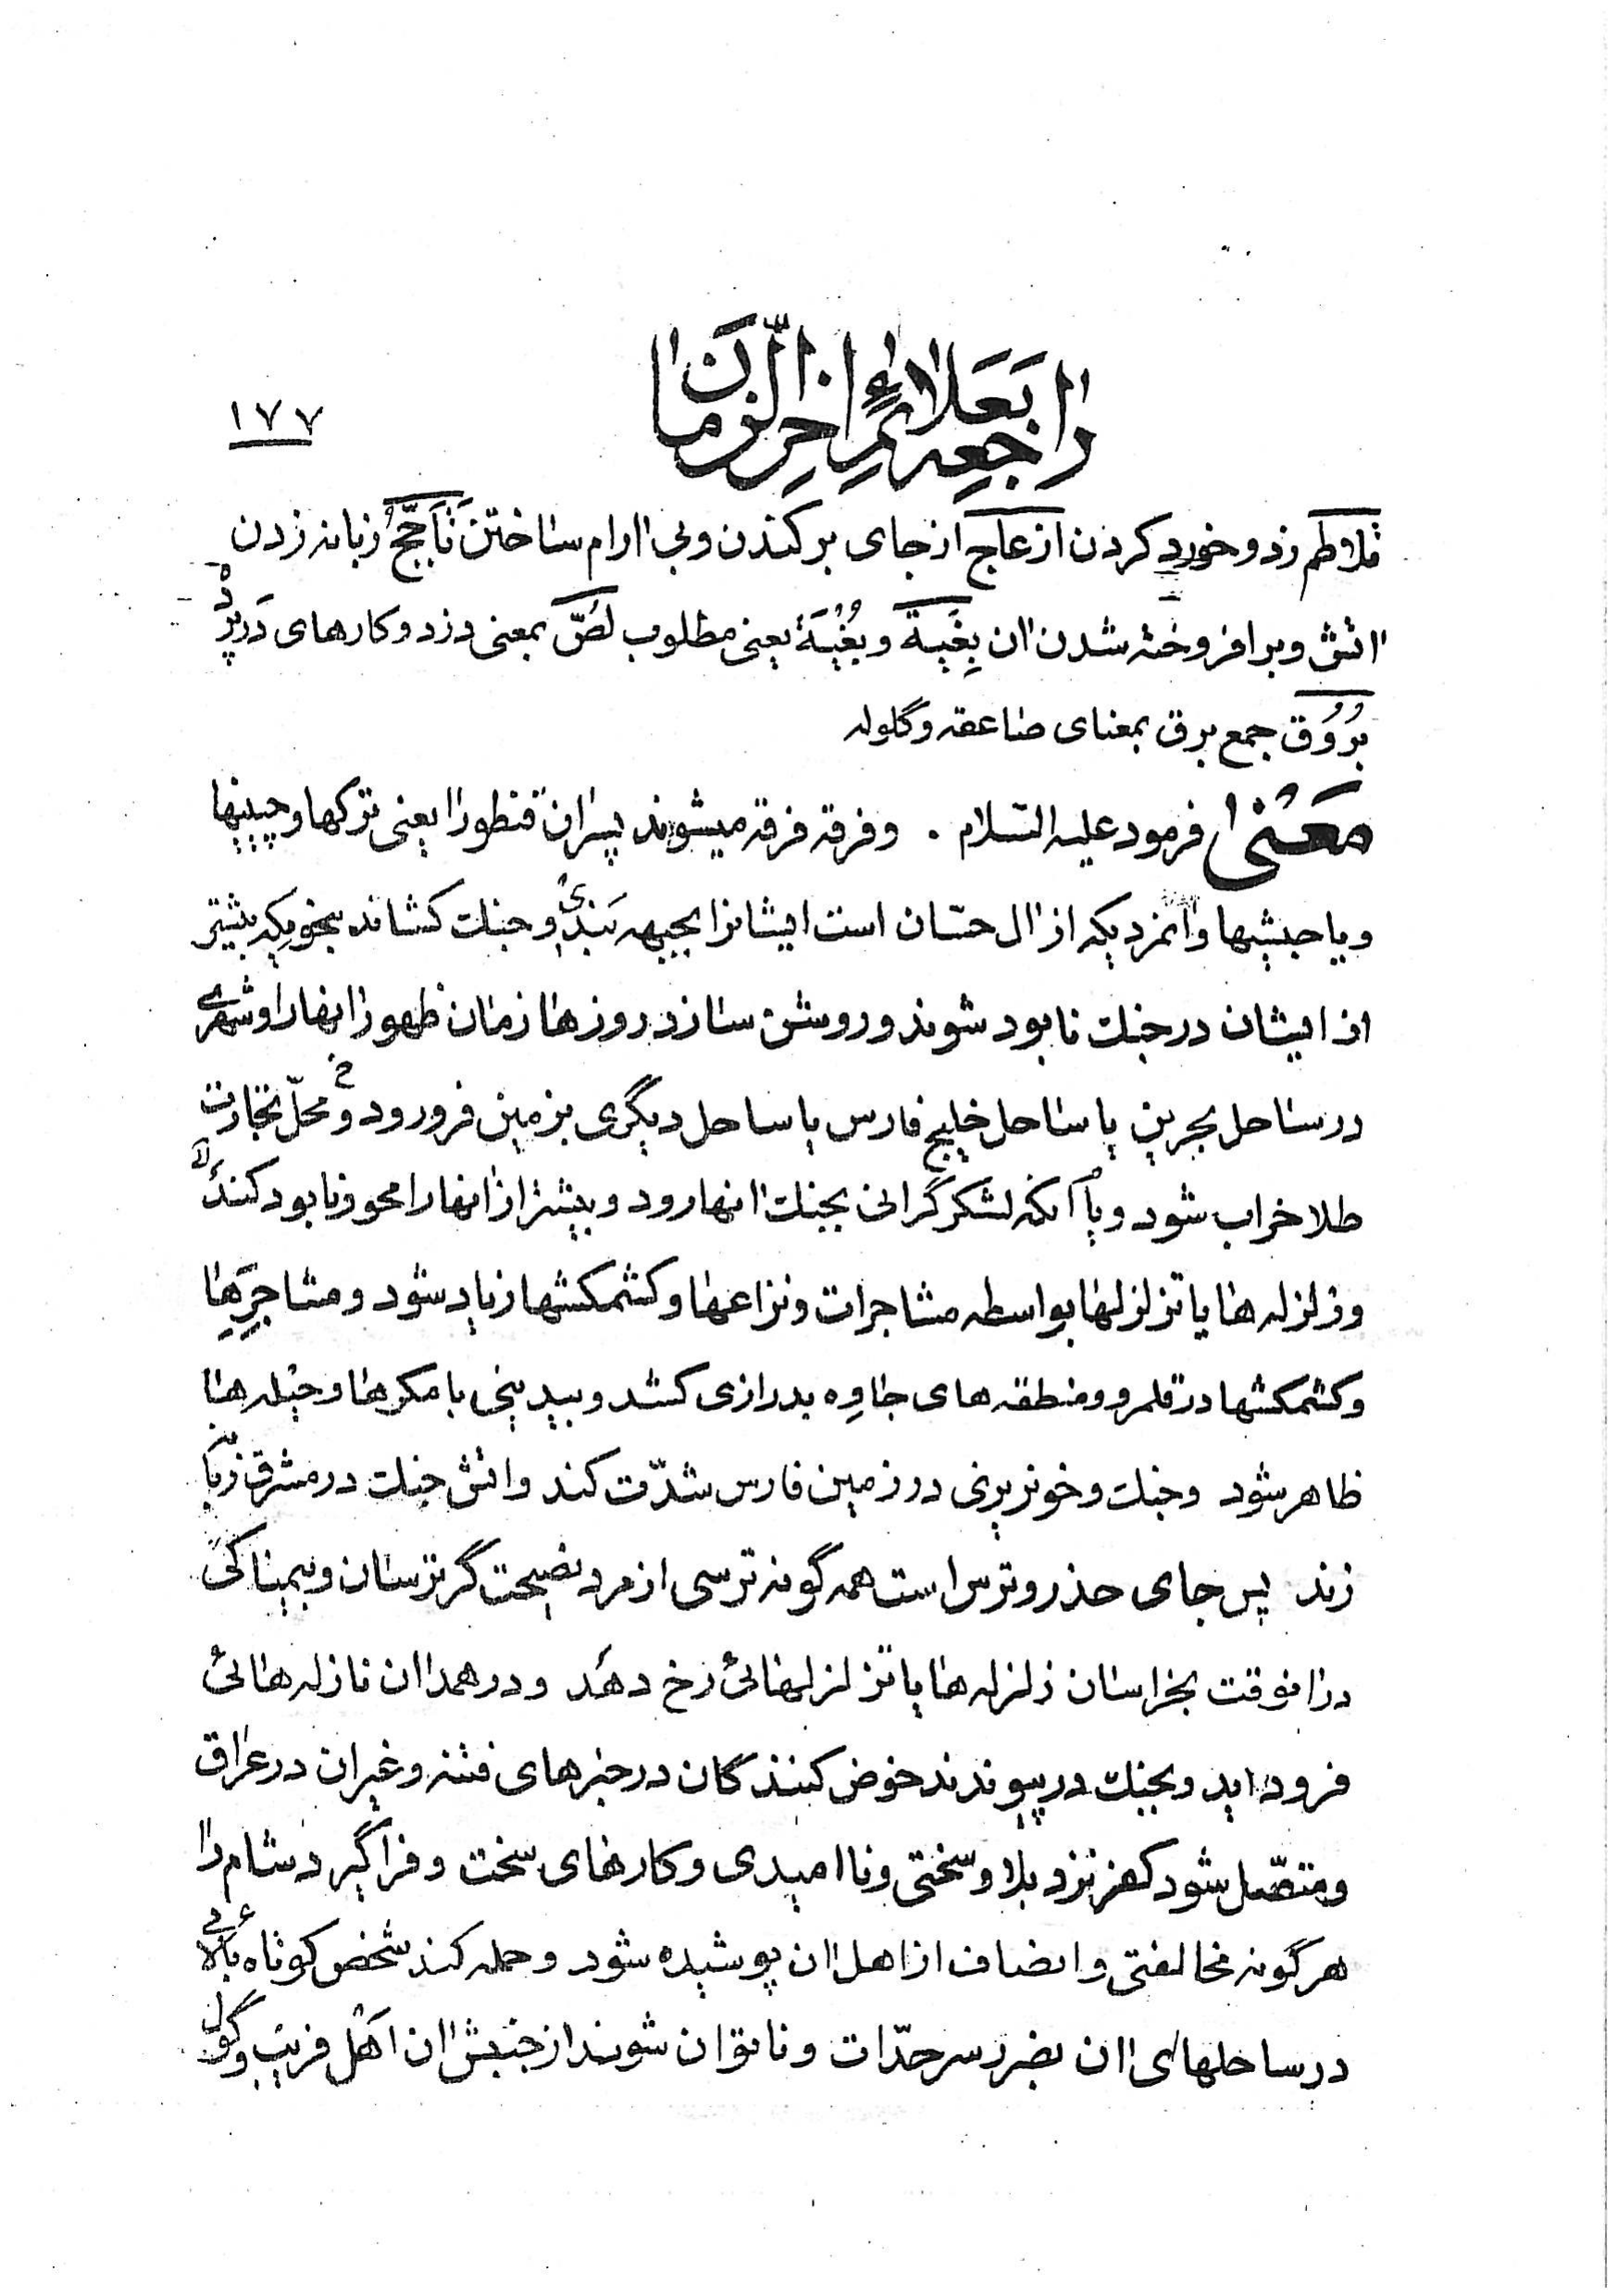 راجعه بعلائم اخر الزمان
۱۷۷
تلاطم زد و خورد کردن ازعاج از جای بر کندن و بی ارام ساختن تاجّج زبانه زدن
اتش و برافروخته شدن ان بِغْیَة و بُغْیَة یعنی مطلوب لصّ بمعنی دزد و کارهای در پرده
بُرُوُق جمع برق بمعنای صاعقه و گلوله
معنی فرمود علیه السّلام . و فرقه فرقه میشوند پسران قنطورا یعنی ترکها و چینیها
و یا حبشیها و انمردیکه از ال حسّان است ایشانرا بجبهه بندی و جنك کشاند بنحویکه بیشتر
از ایشان در جنك نابود شوند و روشن سازد روزها زمان ظهور انها را و شهری
در ساحل بحرین یا ساحل خلیج فارس یا ساحل دیگری بزمین فرو رود و محلّ تجارت
طلا خراب شود و یا انکه لشکر گرانی بجنك انها رود و بیشتر از انها را محو و نابود کند
و زلزله ها یا تزلزلها بواسطه مشاجرات و نزاعها و کشمکشها زیاد شود و مشاجره‌ها
و کشمکشها در قلمرو و منطقه های جاوه بدرازی کشد و بیدینی با مکرها و حیله ها
ظاهر شود و جنك و خونریزی در زمین فارس شدّت کند و اتش جنك در مشرق زبانه
زند پس جای حذر و ترس است همه گونه ترسی از مرد نصیحت گر ترسان و بیمناکی
در انوقت بخراسان زلزله ها یا تزلزلهائی رخ دهد و در همدان نازله هائی
فرود اید و بجنك در پیوندند خوض کنندگان در خبرهای فتنه و غیر ان در عراق
و متصّل شود کفر نزد بلا و سختی و ناامیدی و کارهای سخت و فرا گیرد شام را
هر گونه مخالفتی و انصاف از اهل ان پوشیده شود و حمله کند شخص کوتاه بالائی
در ساحلهای ان بضرر سرحدّات و ناتوان شوند از جنبش ان اهل فریب و گول